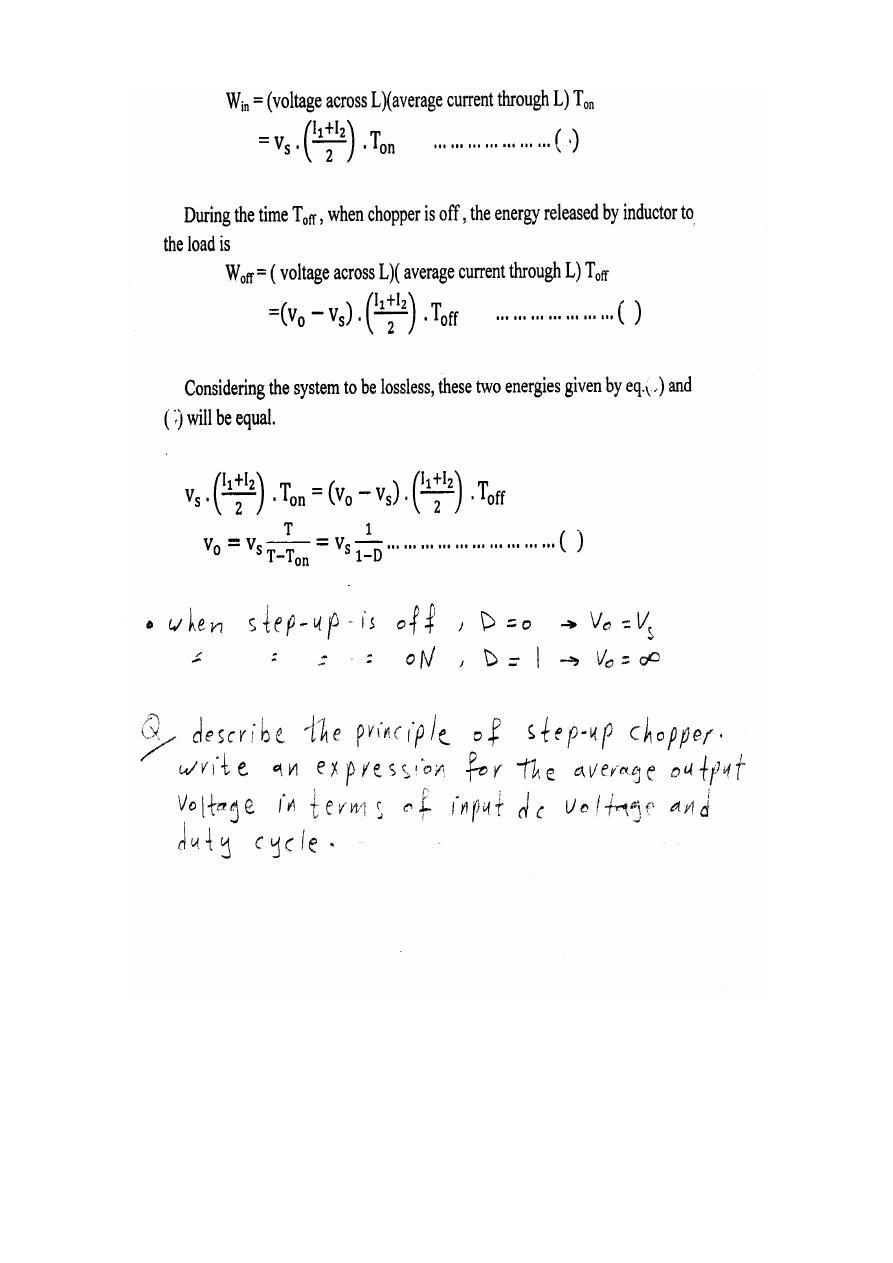 W_in = (voltage across L)(average current through L) T_on
= v_s . ((I_1+I_2)/2) . T_on ... ... ... ... ... ... ...( )
During the time T_off , when chopper is off , the energy released by inductor to
the load is
W_off = ( voltage across L)( average current through L) T_off
=(v_o − v_s) . ((I_1+I_2)/2) . T_off ... ... ... ... ... ... ...( )
Considering the system to be lossless, these two energies given by eq.( ) and
( ) will be equal.
v_s . ((I_1+I_2)/2) . T_on = (v_o − v_s) . ((I_1+I_2)/2) . T_off
v_o = v_s T/(T−T_on) = v_s 1/(1−D) ... ... ... ... ... ... ... ... ... ...( )
• when step-up is off , D=0 → Vo = Vs
= = = = ON , D = 1 → Vo = ∞
Q/ describe the principle of step-up chopper.
write an expression for the average output
Voltage in terms of input dc voltage and
duty cycle .